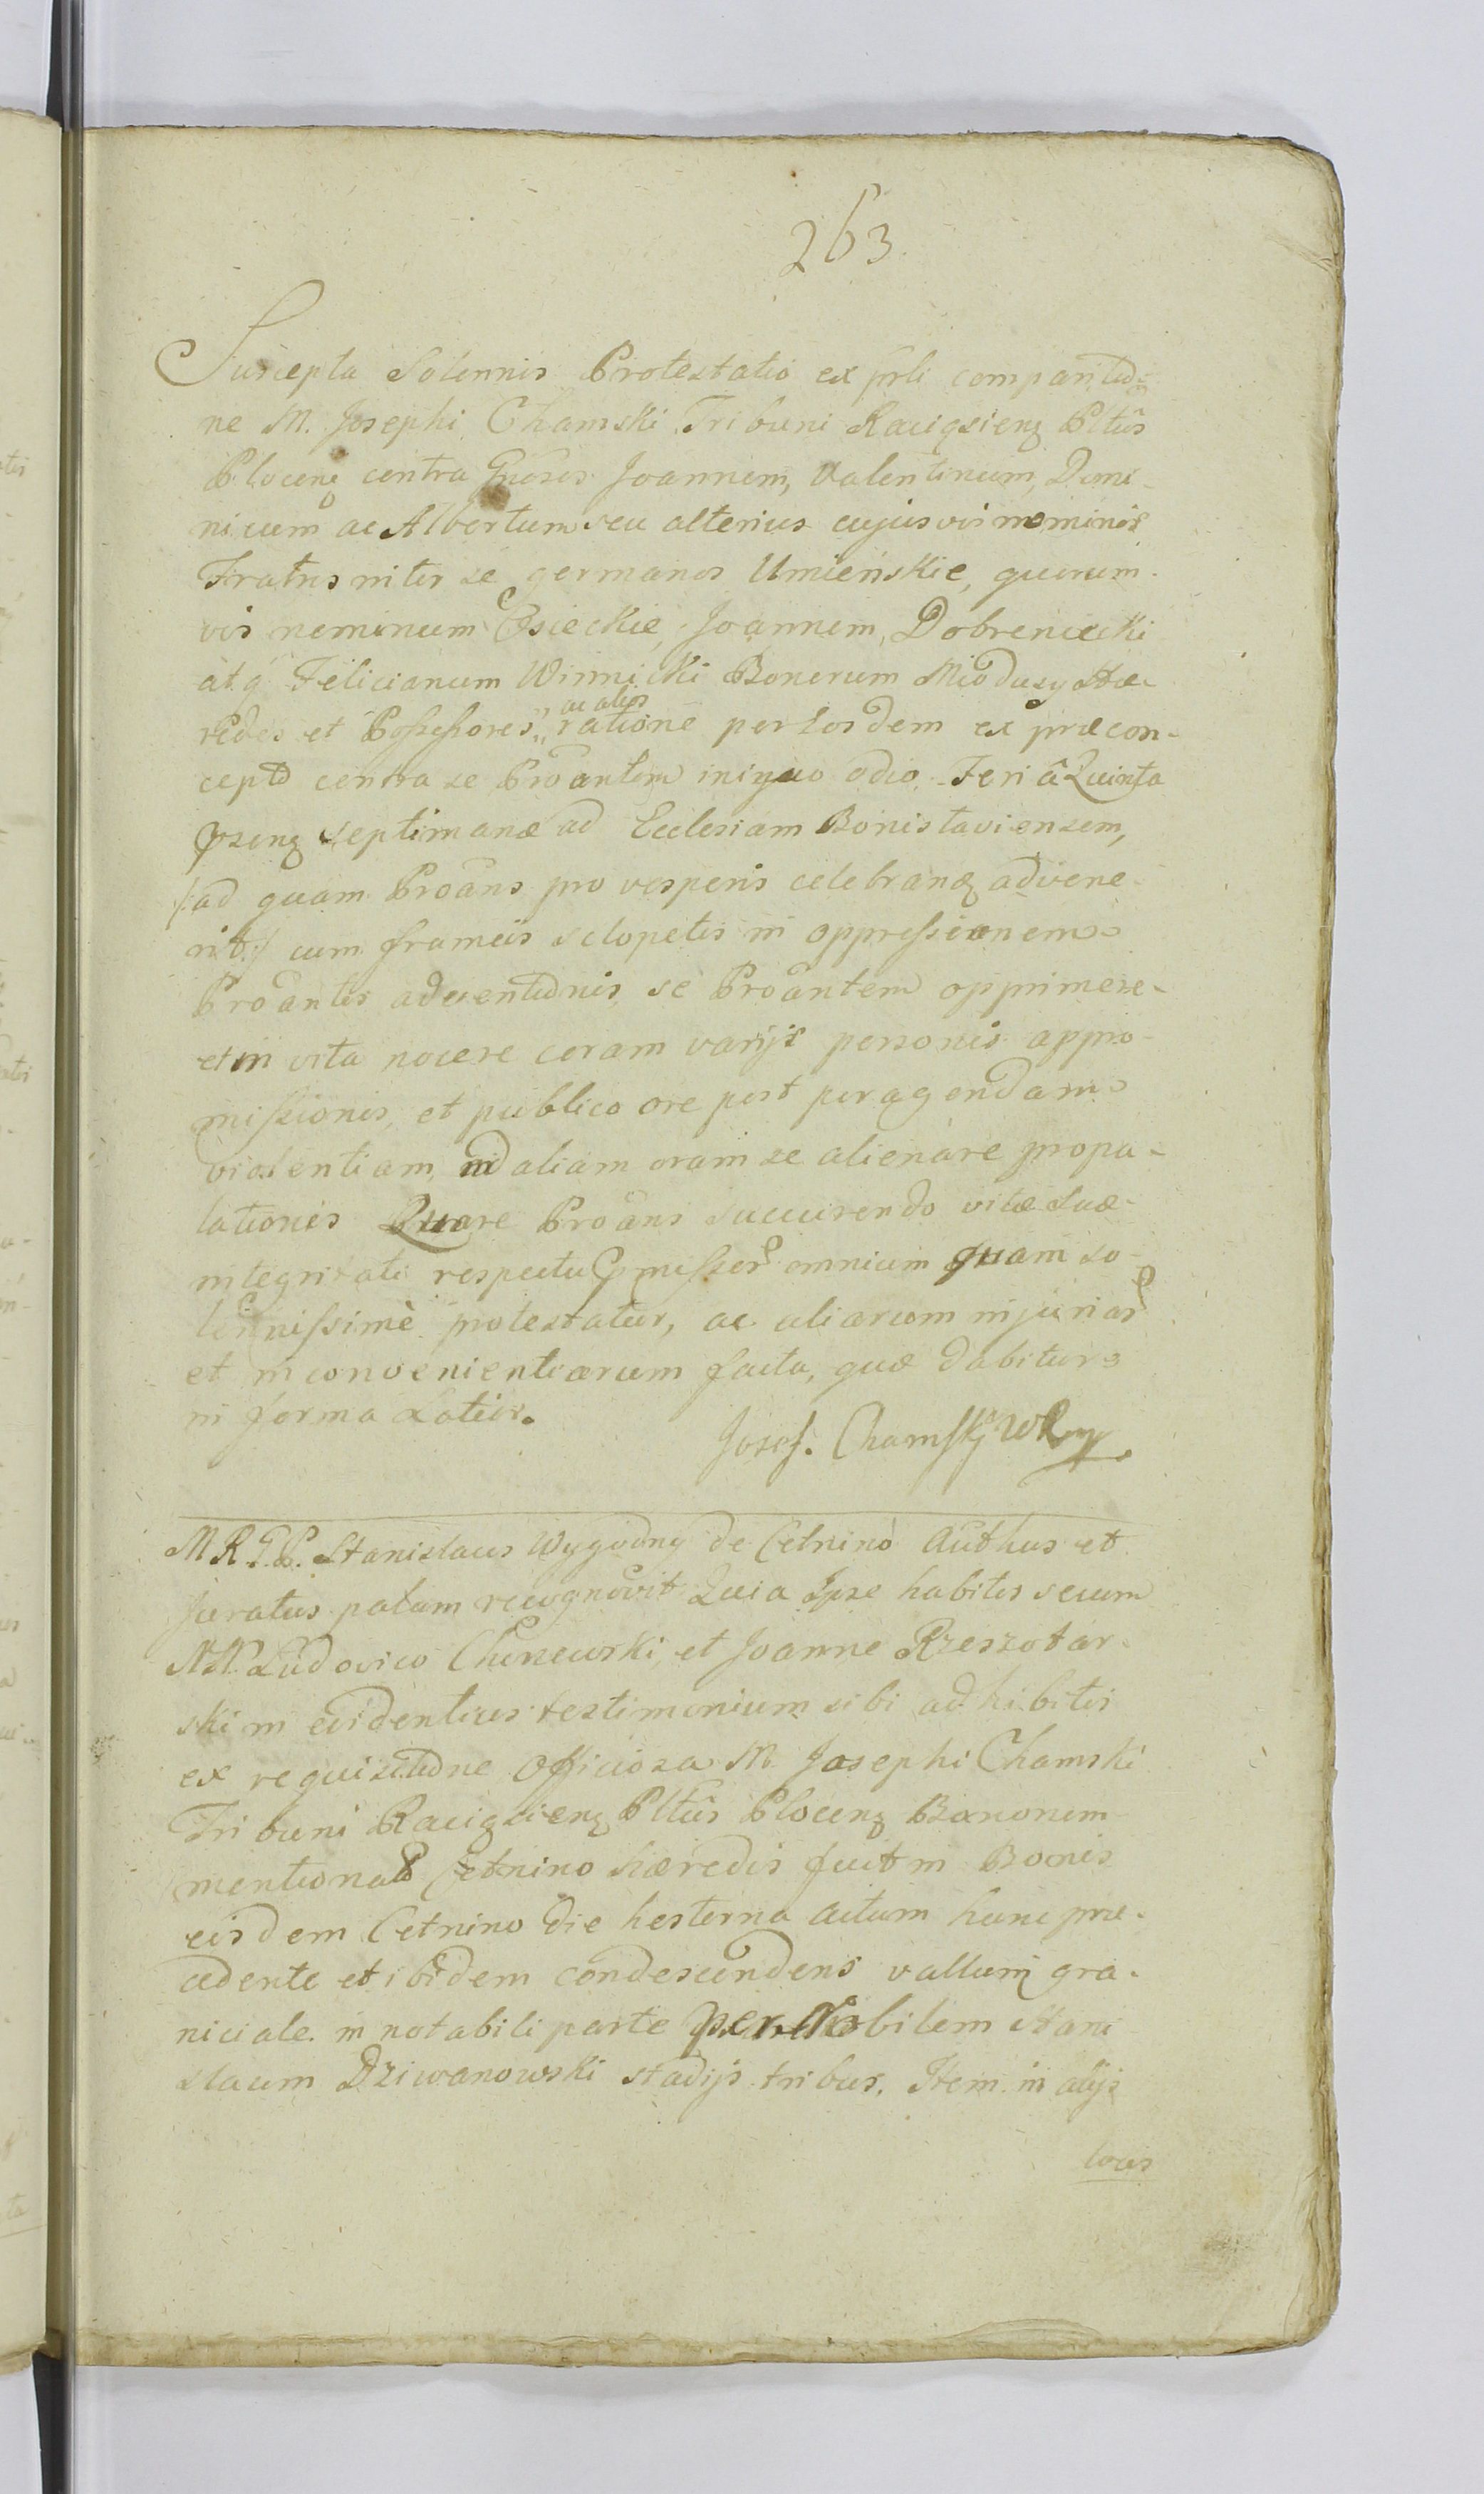 263.
Suscepta Solennis Protestatio ex prli comparitio-
ne M. Josephi Chamski Tribuni Raciąsienẓ Pltûs
Plocenẓ contra Gnosos Joannem, Valentinum, Domi-
nicum ac Albertum seu alterius cujusvis nominis
Fratres inter se germanos Umieńskie, quorum-
vis nominum Osieckie, Joannem, Dobreniecki
atq Felicianum Winnicki Bonorum Miodusy Hae-
redes et Possessores, ac alios ratione per Eosdem ex praecon-
cepto contra se Proantem iniquo odio, Feria Quinta
pzenẓ septimanae ad Ecclesiam Bonislaviensem,
/:ad quam Proans pro vesperis celebranẓ advene-
rit:/ cum frameis sclopetis in oppressionem
Proantis adventionis, se Proantem opprimere
et in vita nocere coram varijs personis appro-
missionis, et publico ore post peragendam
violentiam, in aliam oram se alienare propa-
lationis Quare Proans succurendo vitae suae
integritati respectu pmissor omnium quam so-
lennissimè protestatur, ac aliarum injuriar
et inconvenientiarum facta, quae dabitur
in forma Latior.
Josef. Chamski WR mp.
M R. G. P. Stanislaus Wygodny de Cetnino Authus et
Juratus palam recognovit Quia Ipse habitis secum
NN. Ludovico Chenewski, et Joanne Rzeszotar-
ski in evidentius testimonium sibi adhibitis
ex requisitione Officiosa M. Josephi Chamski
Tribuni Raciąsienẓ Pltûs Plocenẓ Bononem
mentionato Cetnino haeredis fuit in Bonis
eisdem Cetnino die hesterna actum hunc prae-
cedente et ibidem condescendens vallum gra-
niciale in notabili parte per Nobilem Stani-
slaum Dziwanowski stadijs tribus. Item in alijs
locis